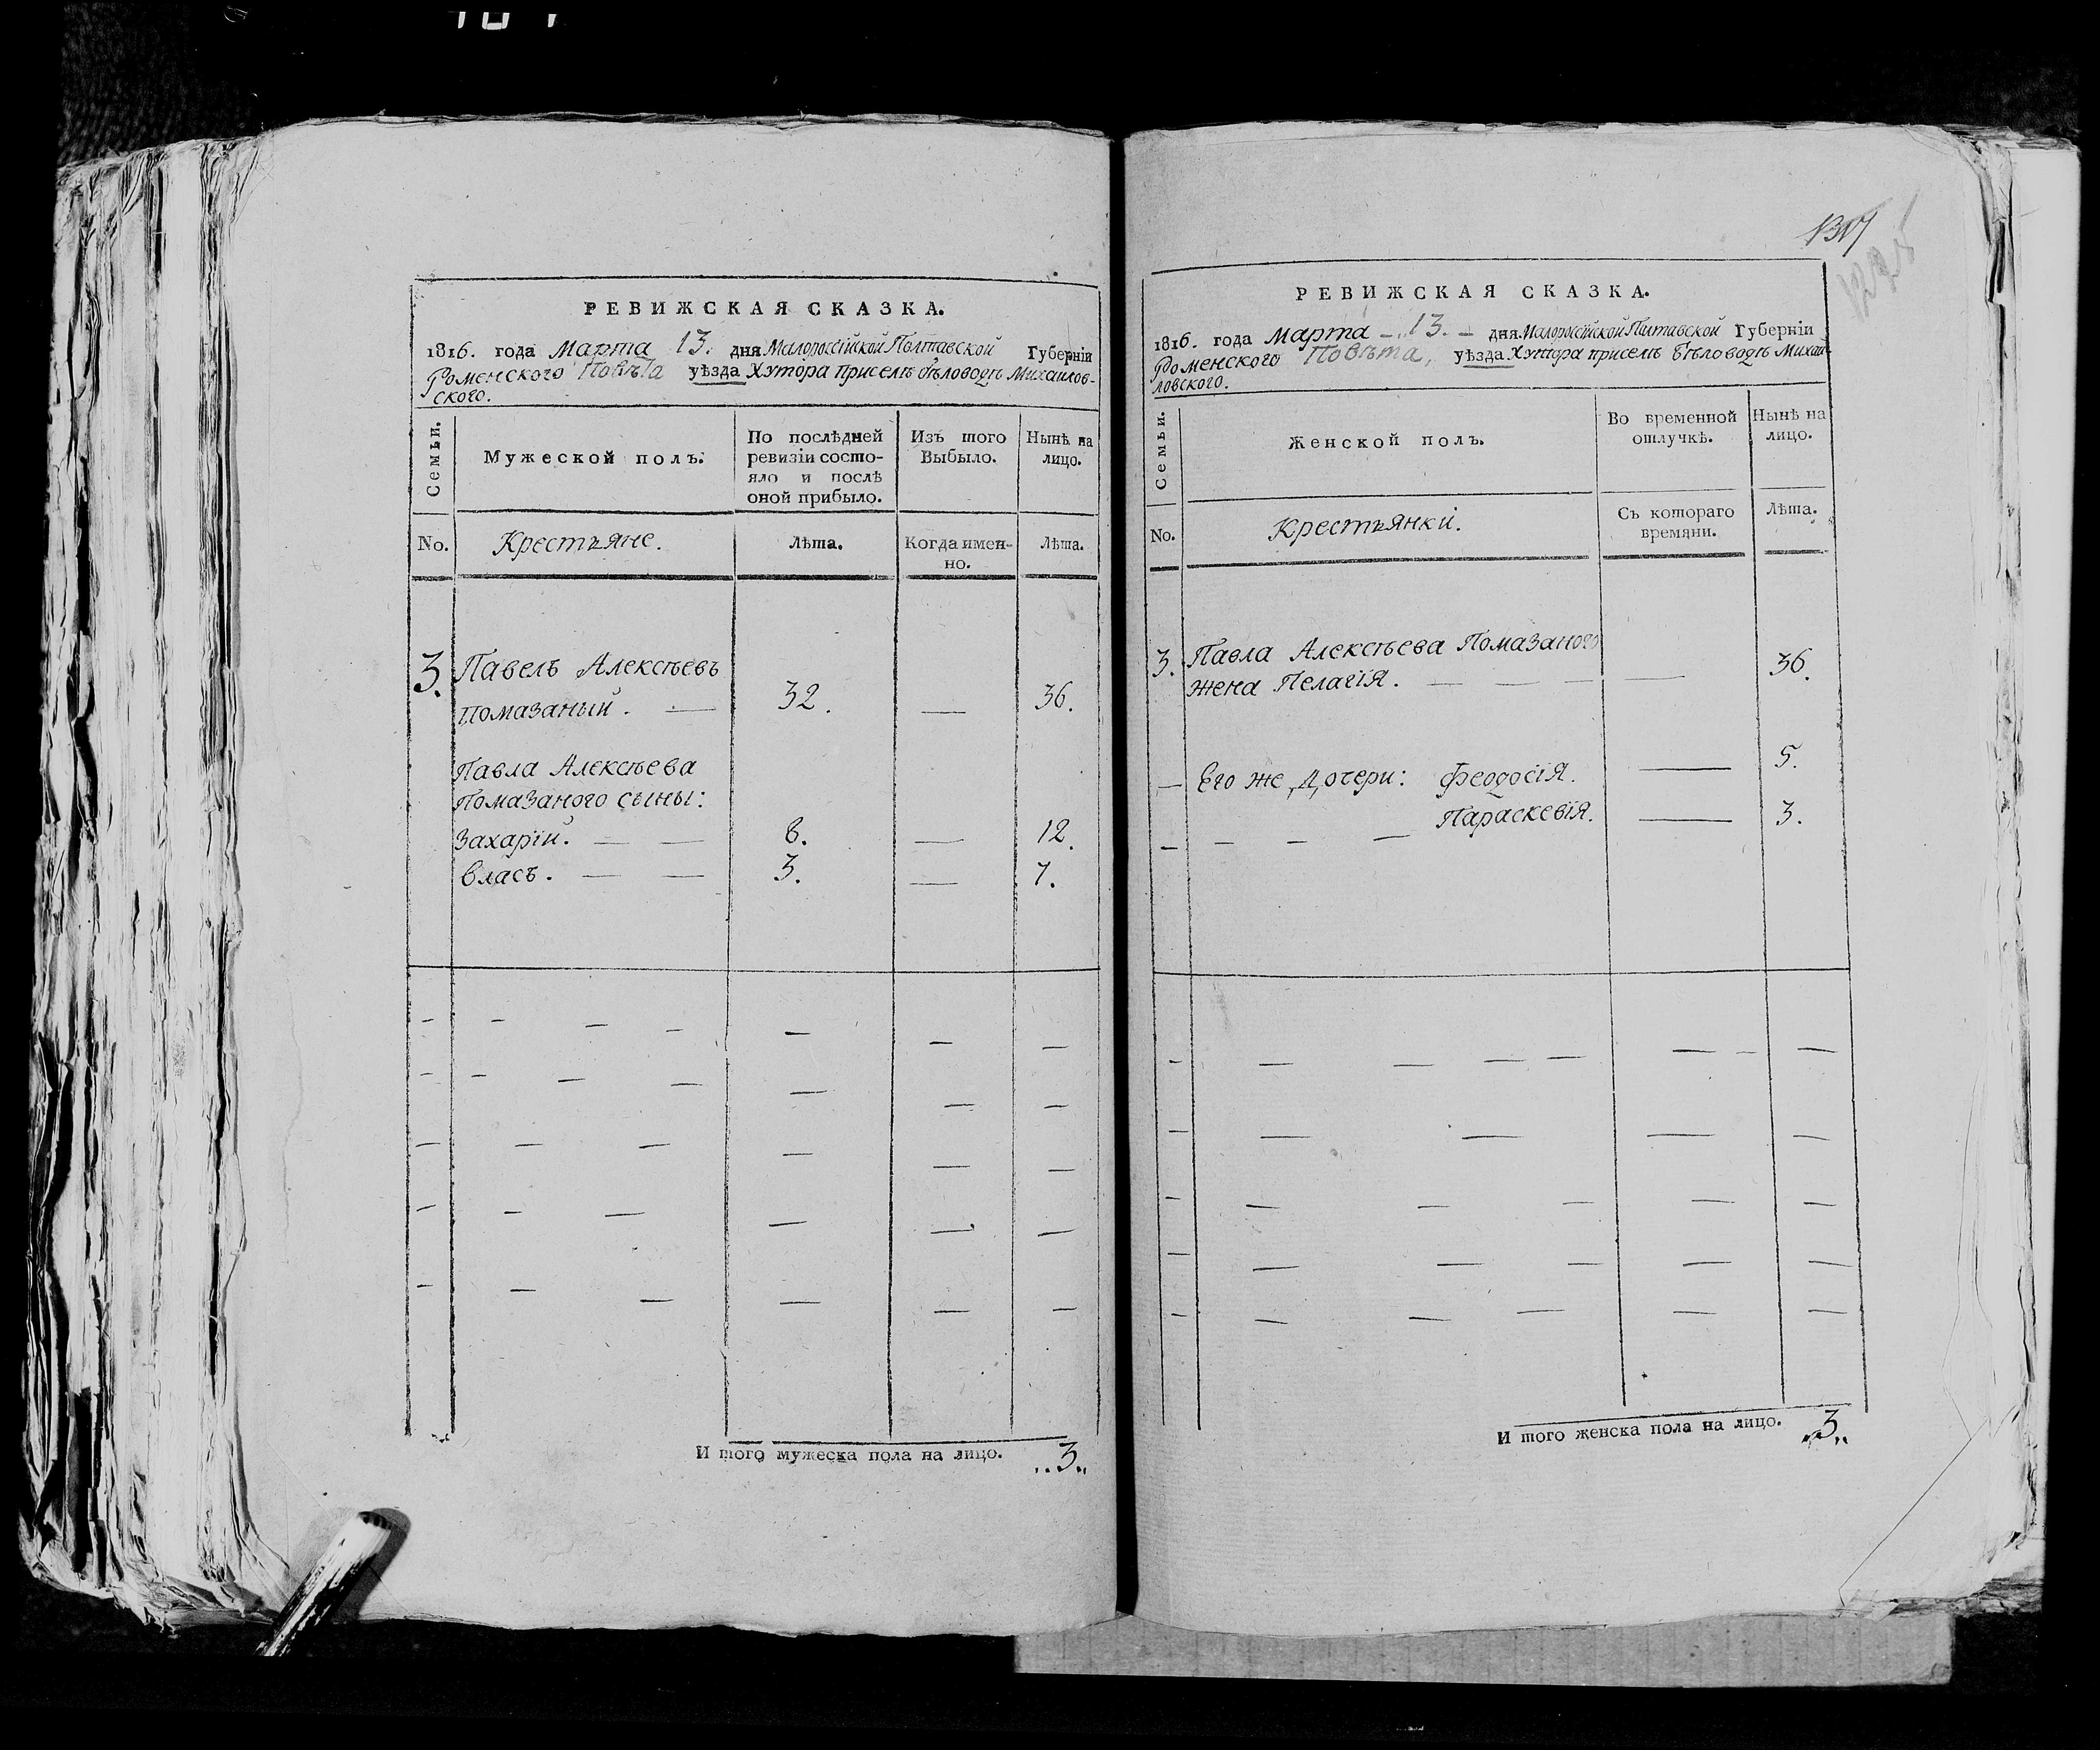 РЕВИЖСКАЯ СКАЗКА.
1816. года Марта 13. дня Малороссійской Полтавской Губерніи
Роменского Повѣта уѣзда Хутора приселѣ бѣловодѣ Михаилов-
ского.
Семьи.
Мужеской полъ.
По послѣдней
ревизіи состо-
яло и послѣ
оной прибыло.
Изъ того
Выбыло.
Нынѣ на
лицо.
No.
Крестьяне.
Лѣта.
Когда имен-
но.
Лѣта.
3. Павелъ Алексѣевъ
Помазаный. — 32. — 36.
Павла Алексѣева
Помазаного сыны:
Захарій. — — 8. — 12.
Власъ. — — 3. — 7.
И того мужеска пола на лицо. „3„
1317
РЕВИЖСКАЯ СКАЗКА.
1816. года Марта 13. дня Малороссійской Полтавской Губерніи
Роменского Повѣта, уѣзда Хутора приселѣ бѣловодѣ Михаи-
ловского.
Семьи.
Женской полъ.
Во временной
отлучкѣ.
Нынѣ на
лицо.
No.
Крестьянки.
Съ котораго
времяни.
Лѣта.
3. Павла Алексѣева Помазаного
жена Пелагія. — — — — 36.
— Его же дочери: Феодосія. — 5.
— — — — Параскевія. — 3.
И того женска пола на лицо. „3„